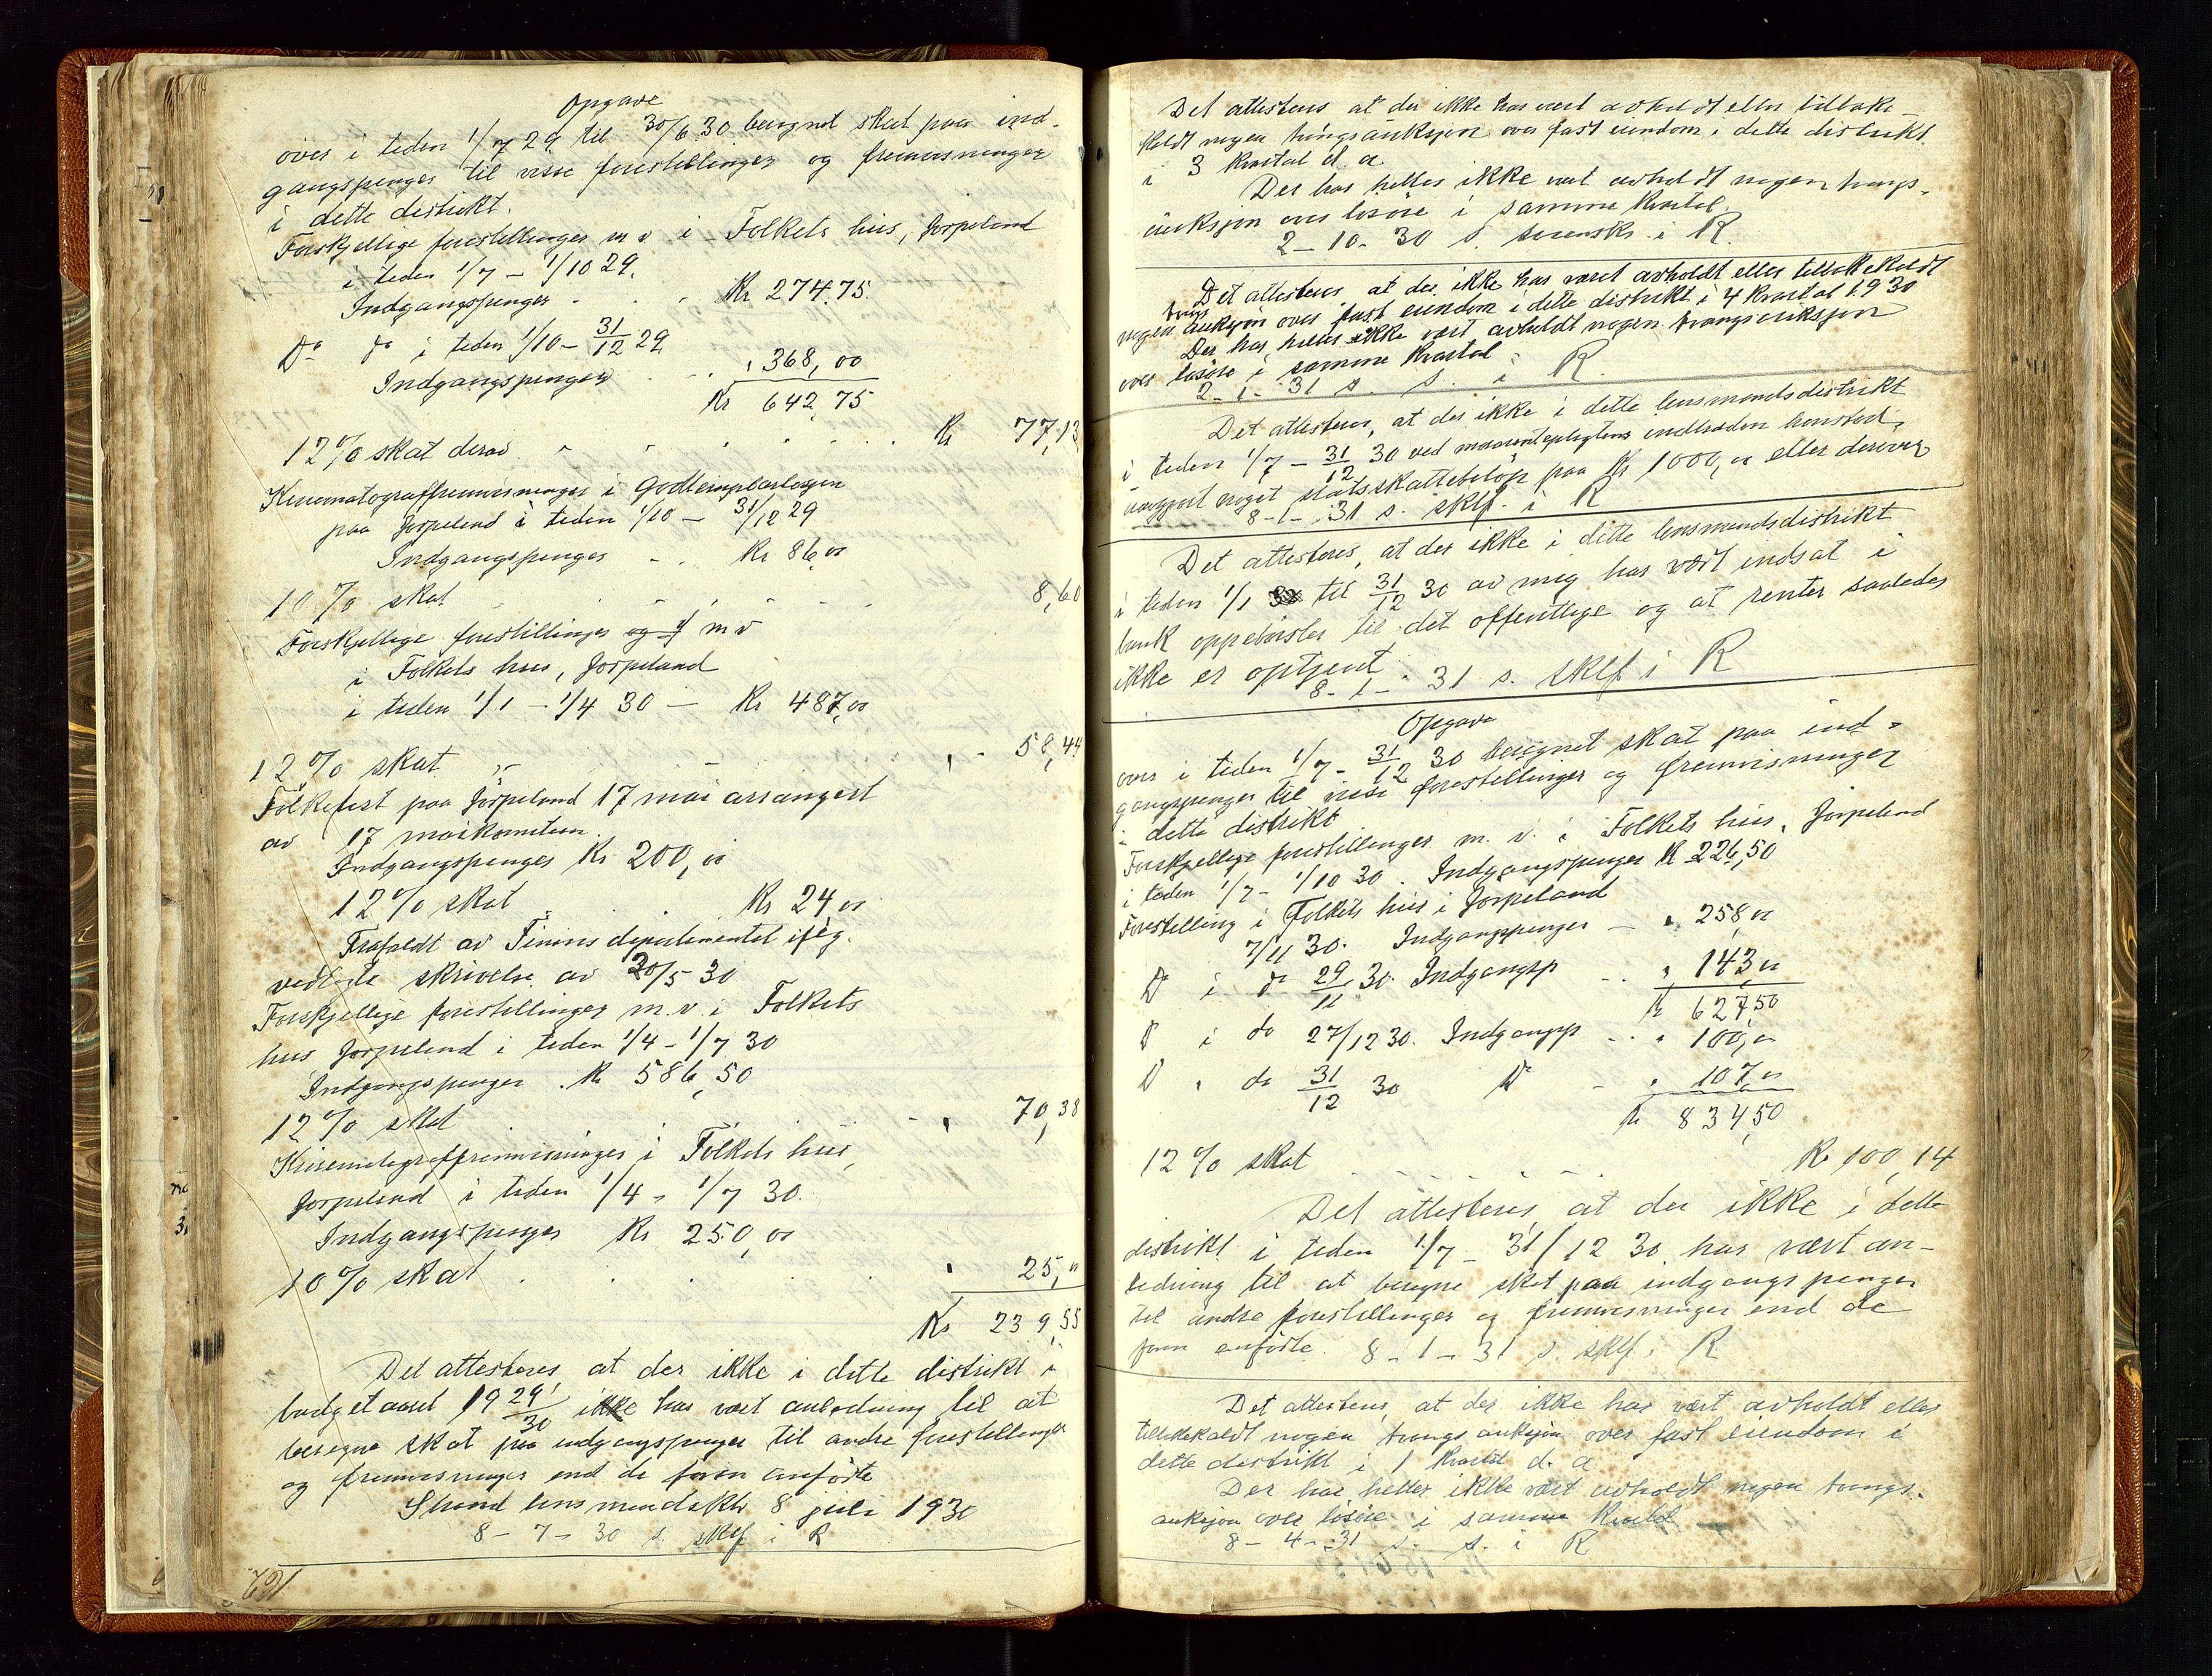 Opgave
over i tiden 1/7 29 til 30/6 30 beregnet skat paa ind-
gangspenger til visse forestillinger og fremvisninger
i dette distrikt.
Forskjellige forestillinger m v i Folkets hus, Jørpeland
i tiden 1/7 - 1/10 29.
Indgangspenger . . . Kr 274,75
Do do i tiden 1/10 - 31/12 29
Indgangspenger . . . " 368,00
Kr 642,75
12 % skat derav . . . . . . Kr 77,13
Kinematograffremvisninger i Godtemplarlosjen
paa Jørpeland i tiden 1/10 - 31/12 29
Indgangspenger . . Kr 86,00
10 % skat . . . . . 8,60
Forskjellige forestillinger og f m v
i Folkets hus, Jørpeland
i tiden 1/1 - 1/4 30 — Kr 487,00
12 % skat . . . " - 58,44
Folkefest paa Jørpeland 17 mai arrangert
av 17 maikomiteen.
Indgangspenger Kr 200,00
12 % skat . . . Kr 24,00
Frafaldt av Finansdepartementet ifølg.
vedlagte skrivelse av 30/5 30
Forskjellige forestillinger m.v. i Folkets
hus Jørpeland i tiden 1/4 - 1/7 30
Indgangspenger . Kr 586,50
12 % skat - " 70,38
Kinematograffremvisninger i Folkets hus,
Jørpeland i tiden 1/4 - 1/7 30.
Indgangspenger Kr 250,00
10 % skat . . . . . " 25,00
Kr 239,55
Det attesteres, at der ikke i dette distrikt i
budgetaaret 1929/30 ikke har vært anledning til at
beregne skat paa indgangspenger til andre forestillinger
og fremvisninger end de foran anførte
Strand lensmandsktr 8 juli 1930
8 - 7 - 30 s. sklf i R
162
Det attesteres at der ikke har vært avholdt eller tilbake-
holdt nogen tvangsauksjon over fast eiendom i dette distrikt
i 3 kvartal d. a.
Der har heller ikke vært avholdt nogen tvangs-
auksjon over løsøre i samme kvartal.
2 - 10 - 30 s. sorensk. i R.
Det attesteres, at der ikke har været avholdt eller tilbakekaldt
nogen tvangsauksjon over fast eiendom i dette distrikt i 4 kvartal 1930
Der har heller ikke vært avholdt nogen tvangsauksjon
over løsøre i samme kvartal.
2 - 1 - 31 s. s. i R.
Det attesteres, at der ikke i dette lensmandsdistrikt
i tiden 1/7 - 31/12 30 ved maanentspligtens indtræden henstod
uavgjort noget statsskattebeløp paa Kr 1000,00 eller derover
8 - 1 - 31 s. sklf. i R
Det attesteres, at der ikke i dette lensmandsdistrikt
i tiden 1/1 30 til 31/12 30 av mig har vært indsat i
bank oppebørsler til det offentlige og at renter saaledes
ikke er optjent.
8 - 1 - 31 s. sklf i R
Opgave
over i tiden 1/7 - 31/12 30 beregnet skat paa ind-
gangspenger til visse forestillinger og fremvisninger
i dette distrikt
Forskjellige forestillinger m. v. i Folkets hus, Jørpeland
i tiden 1/7 - 1/10 30. Indgangspenger Kr 226,50
Forestilling i Folkets hus i Jørpeland
7/11 30. Indgangspenger - " 258,00
Do i do 29/11 30. Indgangsp - . " 143,00
Kr 627,50
Do i do 27/12 30. Indgangsp - . " 100,00
Do " do 31/12 30 Do - " 107,00
Kr 834,50
12 % skat . . . . Kr 100,14
Det attesteres, at der ikke i dette
distrikt i tiden 1/7 - 31/12 30 har vært an-
ledning til at beregne skat paa indgangspenger
til andre forestillinger og fremvisninger end de
foran anførte. 8 - 1 - 31 s. sklf. i R
Det attesteres, at der ikke har vært avholdt eller
tilbakekaldt nogen tvangsauksjon over fast eiendom i
dette distrikt i 1 kvartal d. a
Der har heller ikke vært avholdt nogen tvangs-
auksjon over løsøre i samme kvartal
8 - 4 - 31 s. s. i R